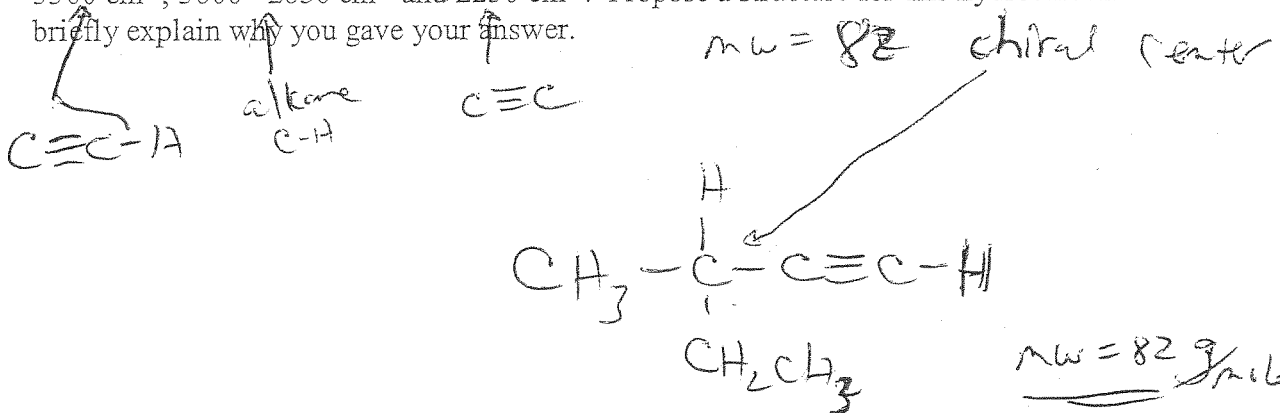 briefly explain why you gave your answer.
mw = 82 chiral center
alkane
C-H
C≡C
C≡C-H
H
CH3-C-C≡C-H
CH2CH3
mw = 82 g/mol